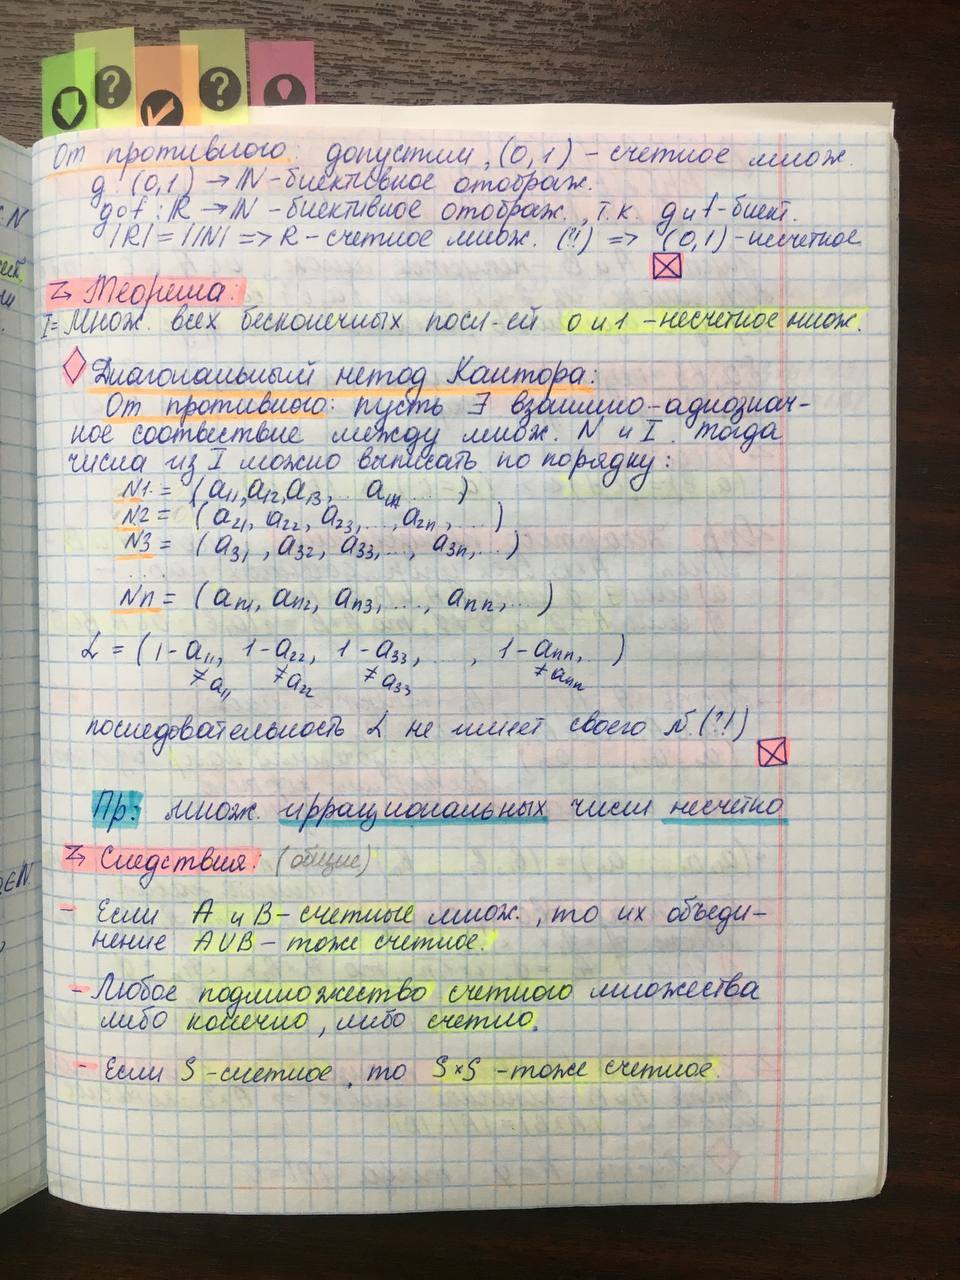 От противного: допустим, (0,1) - счетное множ.
g: (0,1) → ℕ - биективное отображ.
g∘f: ℝ → ℕ - биективное отображ., т.к. g и f - биект.
|ℝ| = |ℕ| => R - счетное множ. (?!) => (0,1) - несчетное
Теорема:
I = Множ. всех бесконечных посл-ей 0 и 1 - несчетное множ.
Диагональный метод Кантора:
От противного: пусть ∃ взаимно-однознач-
ное соотвествие между множ. N и I. тогда
числа из I можно выписать по порядку:
N1 = (a11, a12, a13, ... a1n ... )
N2 = (a21, a22, a23, ..., a2n, ...)
N3 = (a31, a32, a33, ..., a3n, ...)
....
Nn = (an1, an2, an3, ..., ann, ...)
L = (1 - a11, 1 - a22, 1 - a33, ..., 1 - ann, ...)
≠ a11 ≠ a22 ≠ a33 ≠ ann
последовательность L не имеет своего N. (?!)
Пр: множ. иррациональных чисел несчетно
Следствия: (общие)
- Если A и B - счетные множ., то их объеди-
нение A∪B - тоже счетное.
- Любое подмножество счетного множества
либо конечно, либо счетно.
- Если S - счетное, то S×S - тоже счетное.